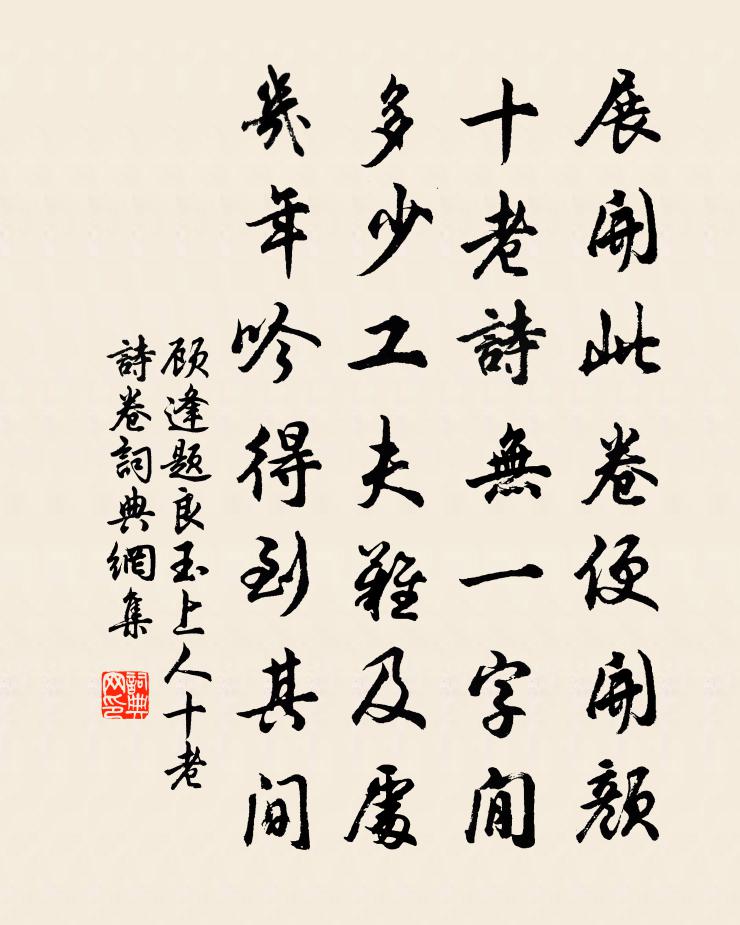 展開此卷便開顏
十老詩無一字閒
多少工夫難及處
幾年吟得到其間
顧逢題良玉上人十老
詩卷詞典網集
詞典网印